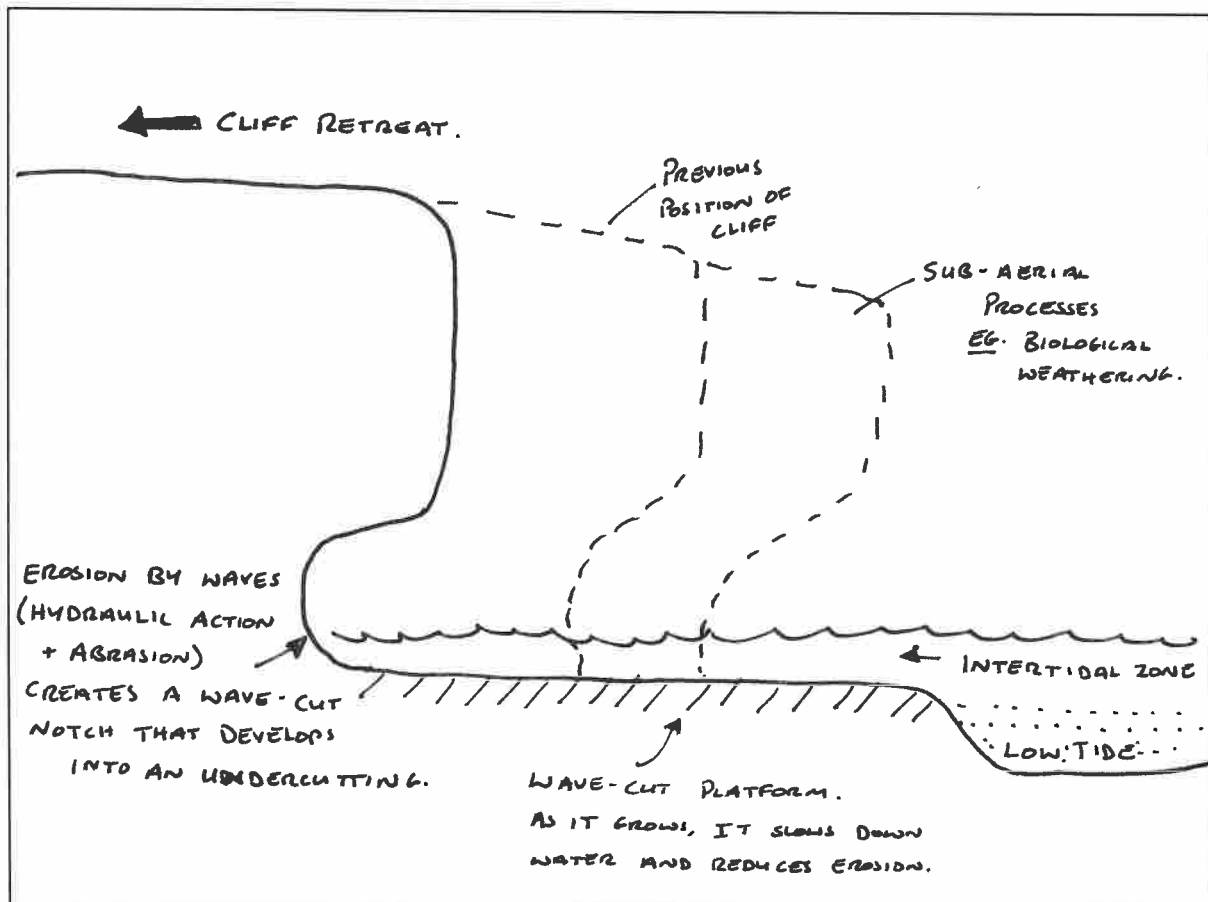 CLIFF RETREAT.
PREVIOUS
POSITION OF
CLIFF
SUB-AERIAL
PROCESSES
EG. BIOLOGICAL
WEATHERING.
EROSION BY WAVES
(HYDRAULIC ACTION
+ ABRASION)
CREATES A WAVE-CUT
NOTCH THAT DEVELOPS
INTO AN UNDERCUTTING.
INTERTIDAL ZONE
LOW TIDE
WAVE-CUT PLATFORM.
AS IT GROWS, IT SLOWS DOWN
WATER AND REDUCES EROSION.